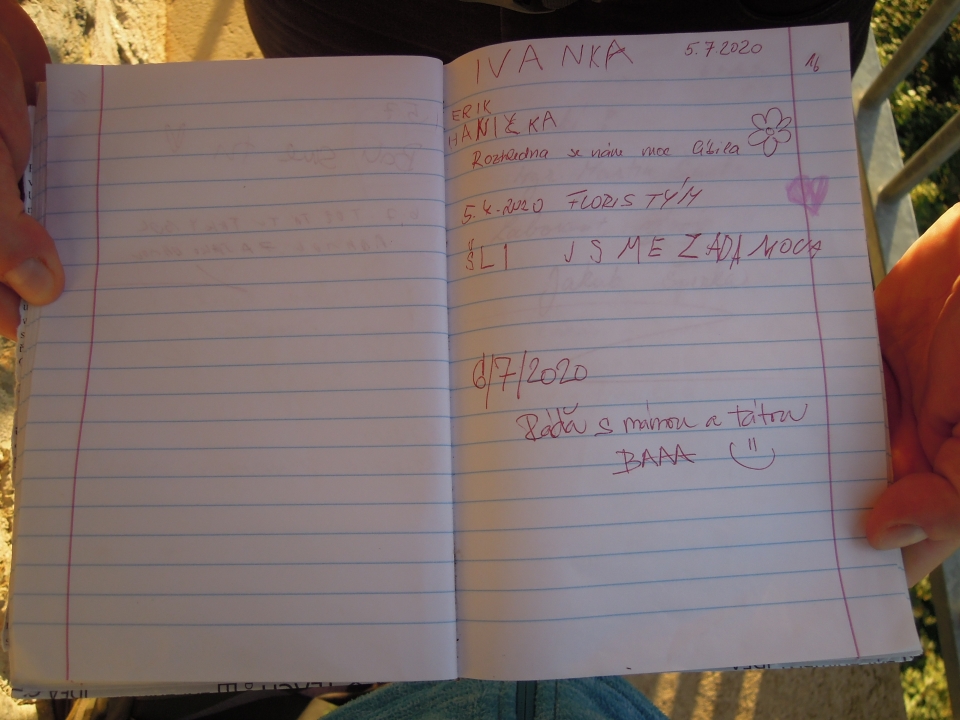 IVANKA 5.7 2020
16
ERIK
HANIČKA
Rozhledna se nám moc líbila
5.4.2020 FLORIS TÝM
ŠLI JSME ZADAMOVA
6/7/2020
Ráďa s mámou a tátou
BAAA